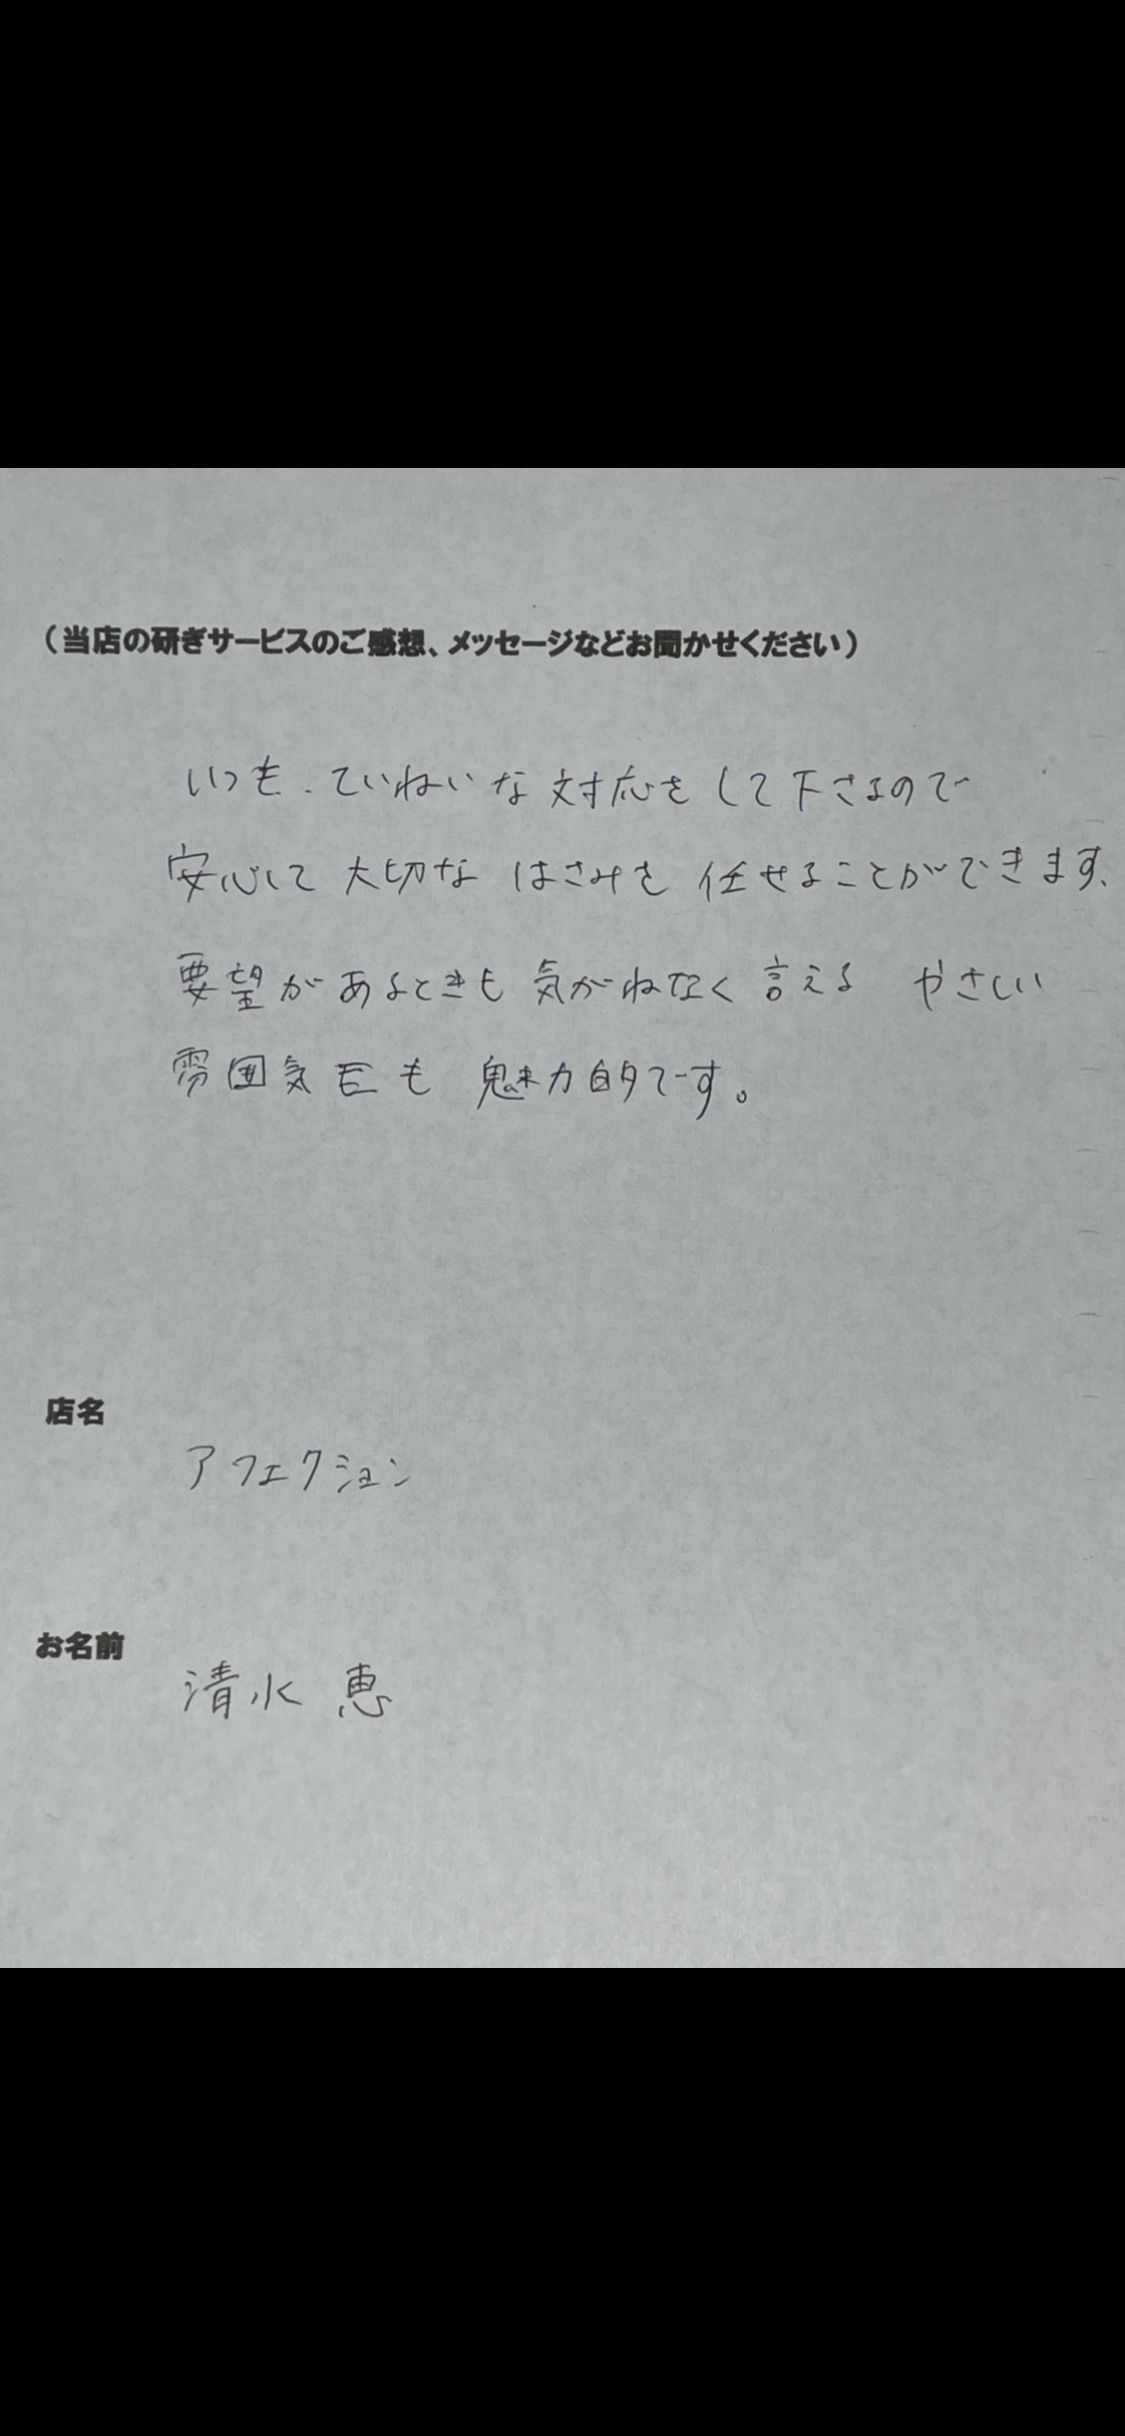 （当店の研ぎサービスのご感想、メッセージなどお聞かせください）
いつも、ていねいな対応をして下さるので
安心して大切なはさみを任せることができます、
要望があるときも気がねなく言える やさしい
雰囲気も 魅力的です。
店名
アフェクション
お名前
清水 恵